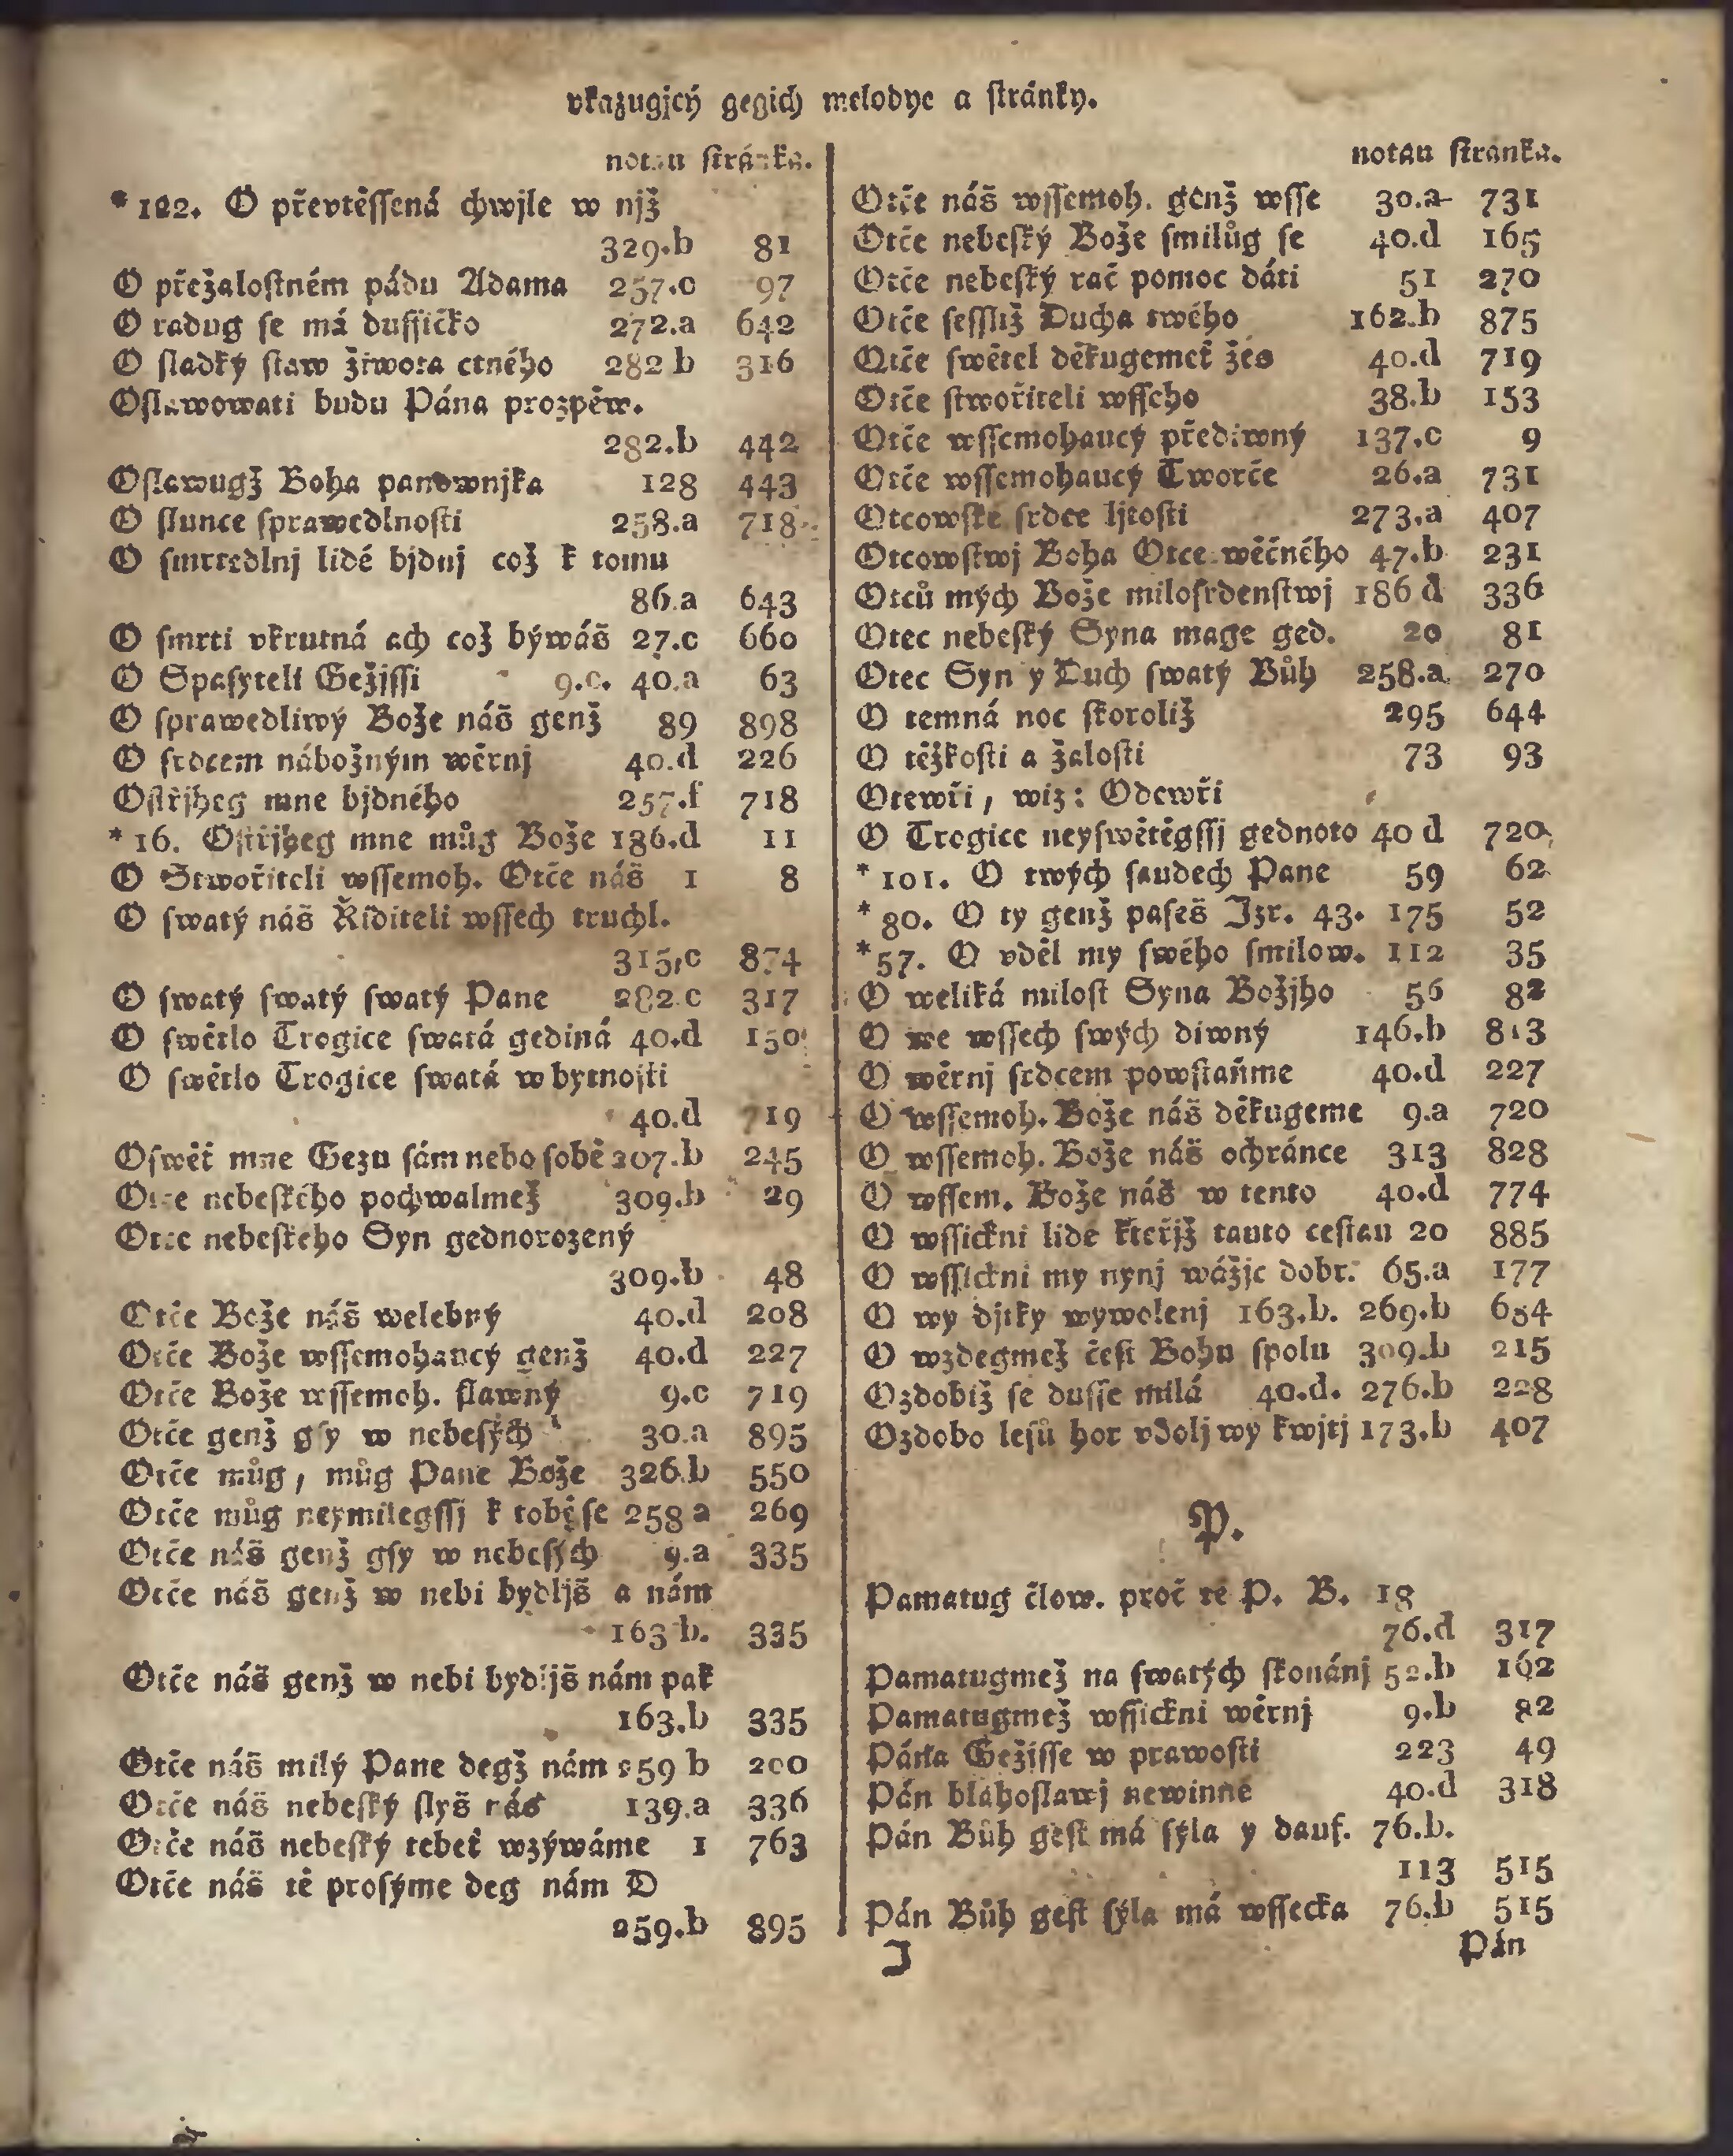 vkazugjcý gegich melodye a ſtránky.
notau ſtránka.
* 122. O převtěſſená chwjle w njž
329.b 81
O přežaloſtném pádu Adama 257.c 97
O radug ſe má duſſičko 272.a 642
O ſladký ſtaw žiwota ctného 282 b 316
Oſlawowati budu Pána prozpěw.
282.b 442
Oſlawugž Boha panownjka 128 443
O ſlunce ſprawedlnoſti 258.a 718
O ſmrtedlnj lidé bjdnj což k tomu
86.a 643
O ſmrti vkrutná ach což býwáš 27.c 660
O Spaſyteli Gežjſſi 9.c. 40.a 63
O ſprawedliwý Bože náš genž 89 898
O ſrdcem nábožným wěrnj 40.d 226
Oſtřjheg mne bjdného 257.f 718
* 16. Oſtřjheg mne můg Bože 186.d 11
O Stwořiteli wſſemoh. Otče náš 1 8
O ſwatý náš Řiditeli wſſech truchl.
315,c 874
O ſwatý ſwatý ſwatý Pane 282.c 317
O ſwětlo Trogice ſwatá gediná 40.d 150
O ſwětlo Trogice ſwatá w bytnoſti
40.d 719
Oſwěť mne Gezu ſám nebo ſobě 207.b 245
Otce nebeſkého pochwalmež 309.b 29
Otce nebeſkeho Syn gednorozený
309.b 48
Otče Bože náš welebný 40.d 208
Otče Bože wſſemohaucý genž 40.d 227
Otče Bože wſſemoh. ſlawný 9.c 719
Otče genž gſy w nebeſých 30.a 895
Otče můg, můg Pane Bože 326.b 550
Otče můg neymilegſſj k tobě ſe 258 a 269
Otče náš genž gſy w nebeſých 9.a 335
Otče náš genž w nebi bydljš a nám
163 b. 335
Otče náš genž w nebi bydljš nám pak
163.b 335
Otče náš milý Pane degž nám 259 b 200
Otče náš nebeſký ſlyš nás 139.a 336
Otče náš nebeſký tebeť wzýwáme 1 763
Otče náš tě proſýme deg nám D
259.b 895
notau ſtranka.
Otče náš wſſemoh. genž wſſe 30.a 731
Otče nebeſký Bože ſmilůg ſe 40.d 165
Otče nebeſký rač pomoc dáti 51 270
Otče ſeſſliž Ducha twého 162.b 875
Otče ſwětel děkugemeť žes 40.d 719
Otče ſtwořiteli wſſeho 38.b 153
Otče wſſemohaucý přediwný 137.c 9
Otče wſſemohaucý Tworče 26.a 731
Otcowſke ſrdce ljtoſti 273.a 407
Otcowſtwj Boha Otce wěčného 47.b 231
Otců mých Bože miloſrdenſtwj 186 d 336
Otec nebeſký Syna mage ged. 20 81
Otec Syn y Duch ſwatý Bůh 258.a. 270
O temná noc ſkoroliž 295 644
O těžkoſti a žaloſti 73 93
Otewři, wiz: Odewři
O Trogice neyſwětěgſſj gednoto 40 d 720
* 101. O twých ſaudech Pane 59 62
* 80. O ty genž paſeš Jzr. 43. 175 52
* 57. O vděl my ſwého ſmilow. 112 35
O weliká miloſt Syna Božjho 56 82
O we wſſech ſwých diwný 146.b 813
O wěrnj ſrdcem powſtaňme 40.d 227
O wſſemoh. Bože náš děkugeme 9.a 720
O wſſemoh. Bože náš ochránce 313 828
O wſſem. Bože náš w tento 40.d 774
O wſſickni lide kteřjž tauto ceſtau 20 885
O wſſickni my nynj wážjc dobr. 65.a 177
O wy djtky wywolenj 163.b. 269.b 684
O wzdegmež čeſt Bohu ſpolu 309.b 215
Ozdobiž ſe duſſe milá 40.d. 276.b 228
Ozdobo leſů hor vdolj wy kwjtj 173.b 407
P.
Pamatug člow. proč tě P. B. 18
76.d 317
Pamatugmež na ſwatých ſkonánj 52.b 162
Pamatugmež wſſickni wěrnj 9.b 82
Pána Gežjſſe w prawoſti 223 49
Pán blahoſlawj newinné 40.d 318
Pán Bůh geſt má ſýla y dauf. 76.b.
113 515
Pán Bůh geſt ſýla má wſſecka 76.b 515
J Pán